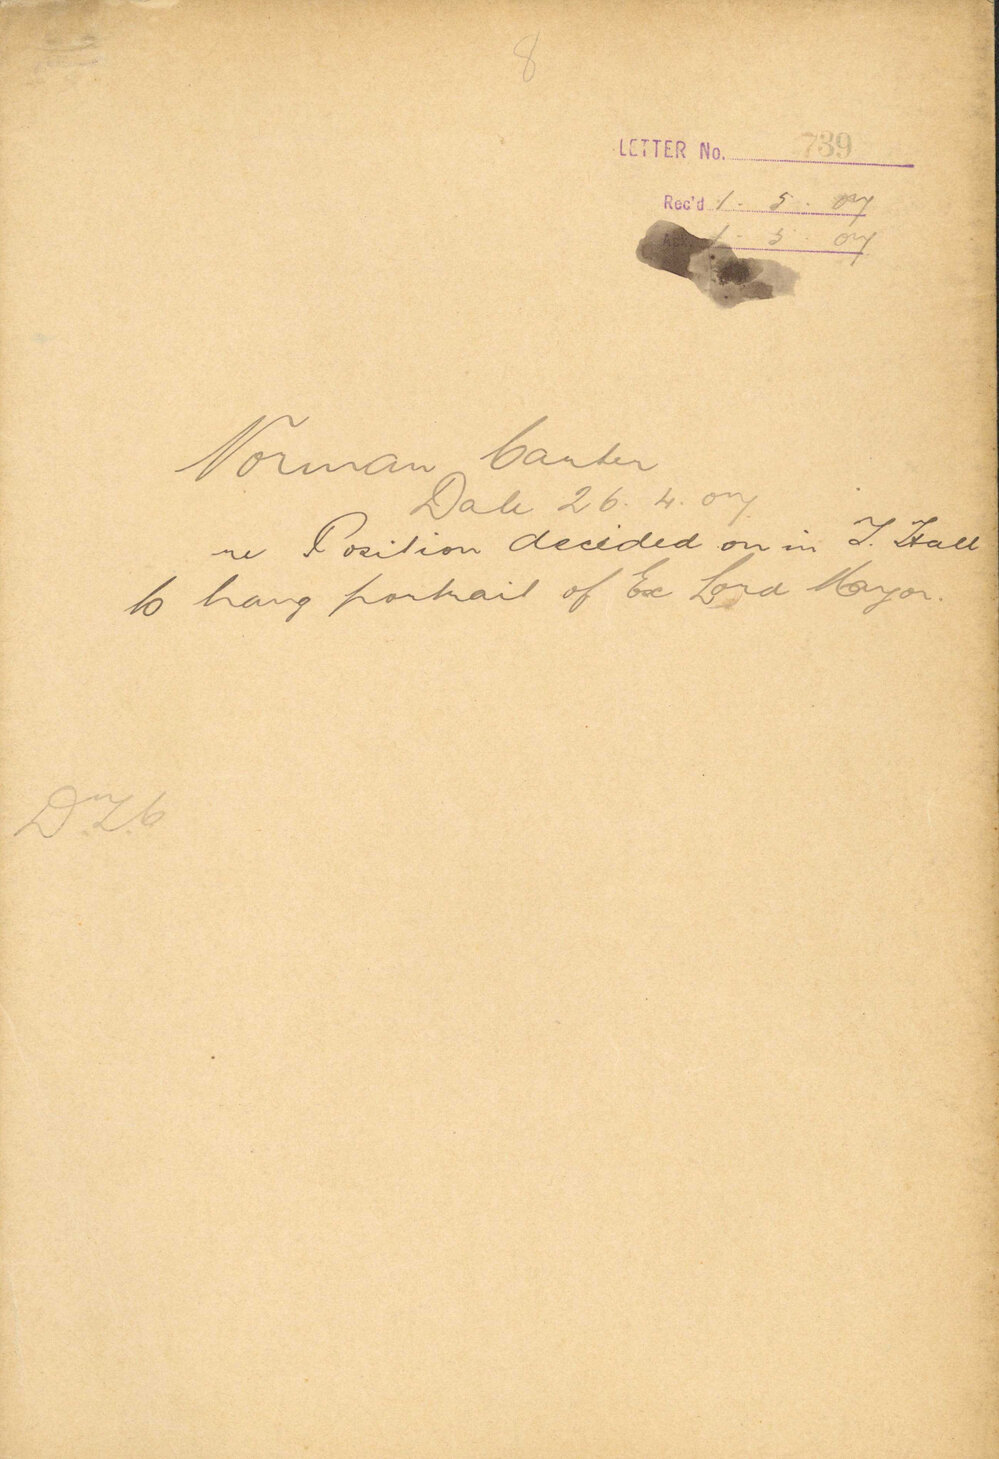 8
LETTER No. 739
Rec'd 1 - 5 - 07
Ack. 1 - 5 - 07
Norman Carter
Date 26. 4. 07
re Position decided on in T. Hall
to hang portrait of Ex Lord Mayor.